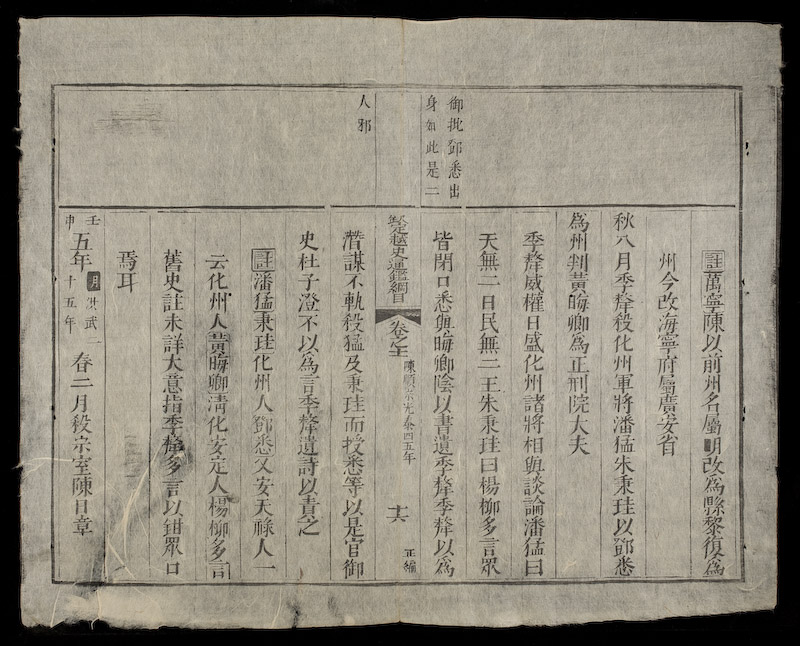 御批鄧悉出
身如此是二
人邪
註萬寧陳以前州名屬明改為縣黎復為
州今改海寧府屬廣安省
秋八月季犛殺化州軍將潘猛朱秉珪以鄧悉
為州判黃晦卿為正刑院大夫
季犛威權日盛化州諸將相與談論潘猛曰
天無二日民無二王朱秉珪曰楊柳多言眾
皆閉口悉與晦卿陰以書遺季犛季犛以為
欽定越史通鑑綱目 卷之十一 陳順宗光泰四五年 十六 正編
潛謀不軌殺猛及秉珪而授悉等以是官御
史杜子澄不以為言季犛遺詩以責之
註潘猛秉珪化州人鄧悉乂安天祿人一
云化州人黃晦卿清化安定人楊柳多言
舊史註未詳大意指季犛多言以鉗眾口
焉耳
壬申五年明洪武二十五年春二月殺宗室陳日章